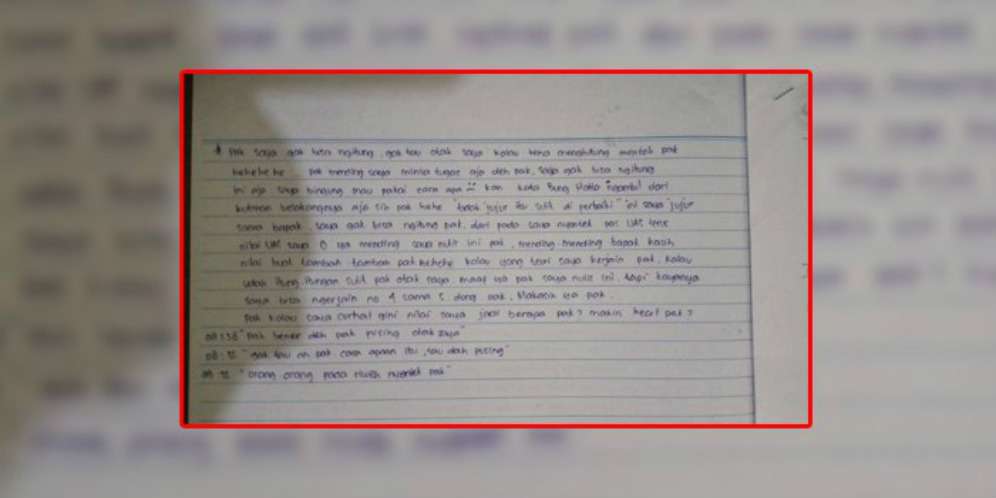 * Pak saya gak bisa ngitung, gak tau otak saya kalau kena menghitung mentok pak
hehehehe pak mending saya minta tugas aja deh pak, saya gak bisa ngitung
ini aja saya bingung mau pakai cara apa kan kata Bung Hatta ngambil dari
kutipan belakangnya aja sih pak hehe "tidak jujur itu sulit di perbaiki" ini saya jujur
sama bapak, saya gak bisa ngitung pak, dari pada saya nyontek pas UAS terus
nilai UAS saya 0 ya mending saya nulis ini pak, mending-mending bapak kasih
nilai buat tambah tambah pak hehehe kalau yang teori saya kerjain pak, kalau
udah itung itungan sulit pak otak saya. maaf ya pak saya nulis ini, tapi kayaknya
saya bisa ngerjain no 4 sama 5 dong pak. Makasih ya pak.
Pak kalau saya curhat gini nilai saya jadi berapa pak? makin kecil pak?
"pak bener deh pak pusing otak saya"
"gak tau ah pak cara apaan itu, udah pusing"
"orang orang pada nyontek pak"